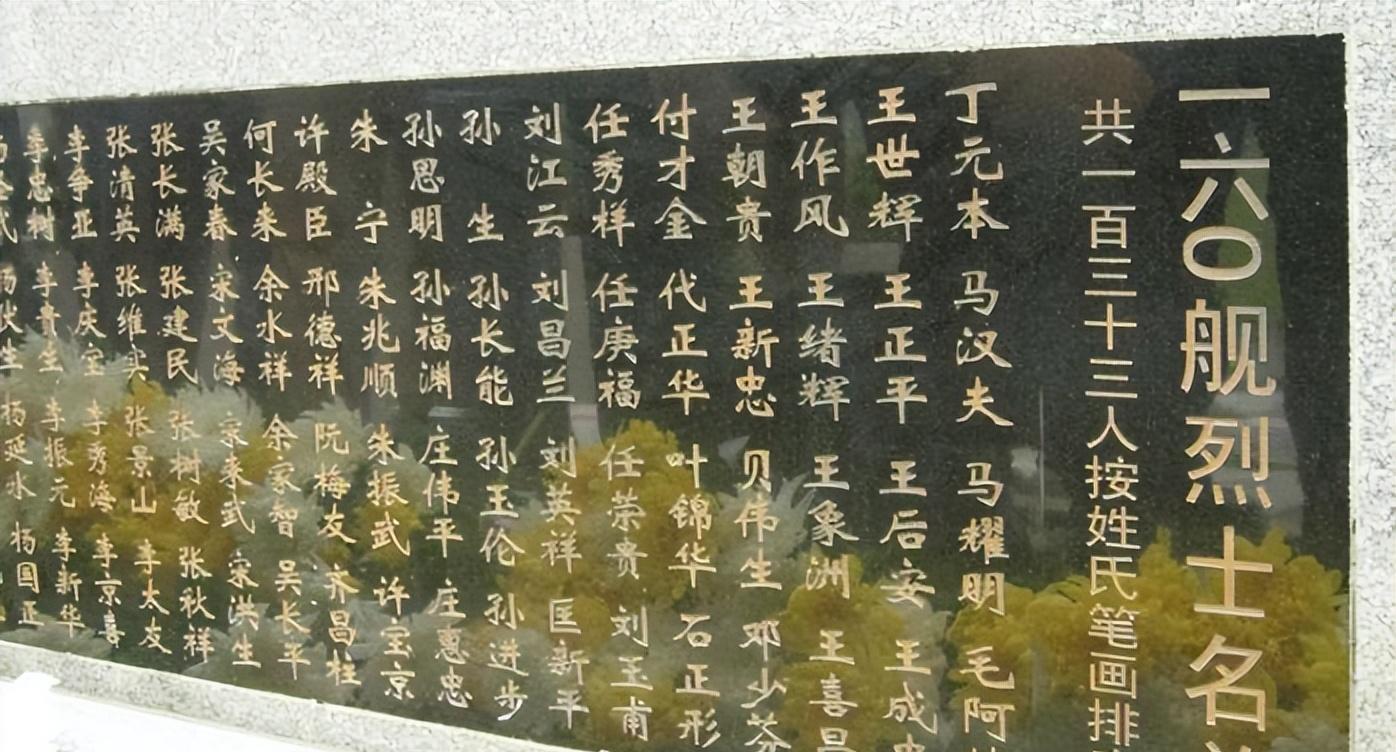 一六〇舰烈士名
共一百三十三人按姓氏笔画排
丁元本 马汉夫 马耀明 毛阿
王世辉 王正平 王后安 王成
王作风 王绪辉 王象洲 王喜昌
王朝贵 王新忠 贝伟生 邓少芬
付才金 代正华 叶锦华 石正形
任秀样 任庚福 任荣贵 刘玉甫
刘江云 刘昌兰 刘英祥 匡新平
孙生 孙长能 孙玉伦 孙进步
孙思明 孙福渊 庄伟平 庄惠忠
朱宁 朱兆顺 朱振武 许宝京
许殿臣 邢德祥 阮梅友 齐昌柱
何长来 余水祥 余家智 吴长平
吴家春 宋文海 宋来武 宋洪生
张长满 张建民 张树敏 张秋祥
张清英 张维实 张景山 李太友
李争亚 李庆宝 李秀海 李京喜
李忠树 李贵生 李振元 李新华
杨延水 杨国正